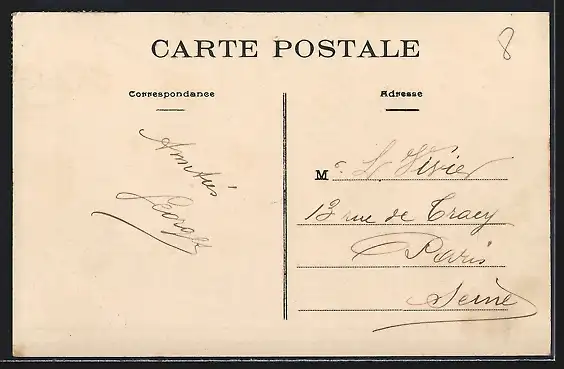 CARTE POSTALE
8
Correspondance
Adresse
Amitiés
Georges
Mr L. Vivier
13 rue de Tracy
Paris
Seine